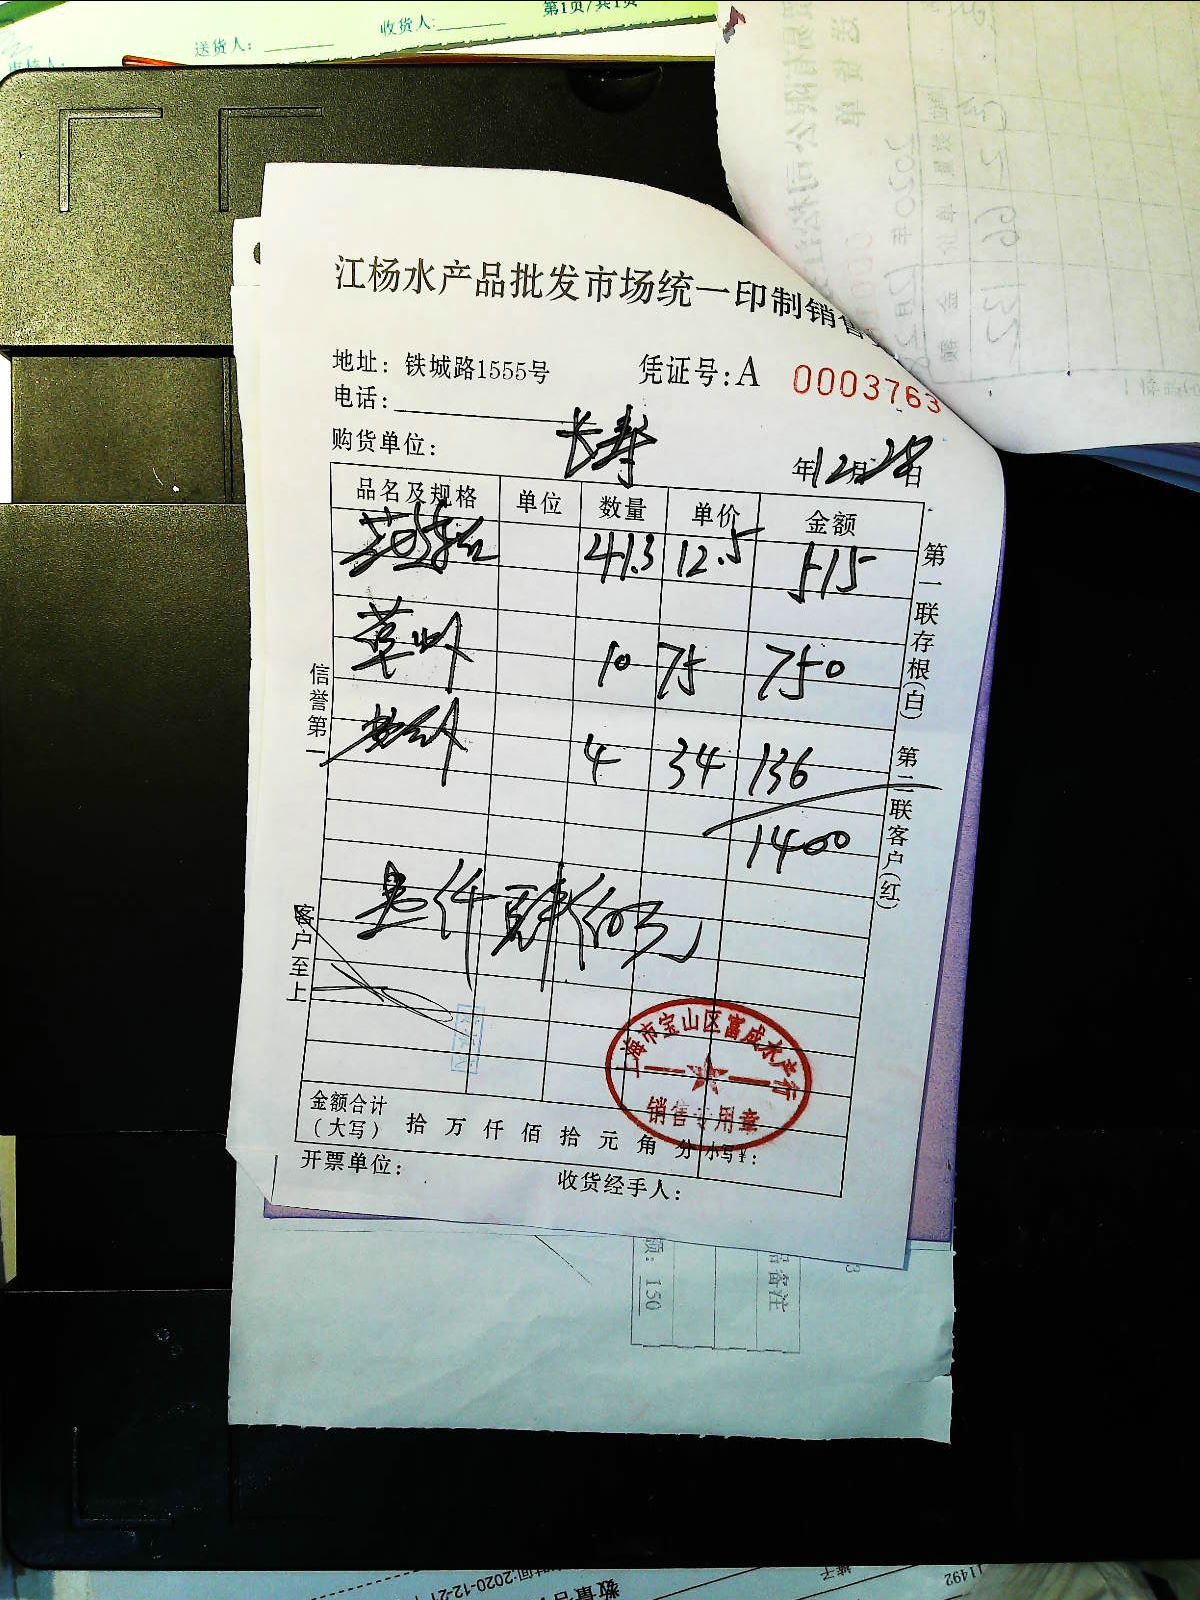 第1页/共1页
收货人:
送货人:
江杨水产品批发市场统一印制销售
地址: 铁城路1555号 凭证号: A 0003763
电话:
购货单位: 长寿 年12月28日
品名及规格 单位 数量 单价 金额
41.3 12.5 515
草虾 10 75 750
4 34 136
1400
壹仟 肆佰 元
信誉第一
客户至上
第一联存根(白) 第二联客户(红)
上海市宝山区富成水产行
销售专用章
金额合计
(大写) 拾 万 仟 佰 拾 元 角 分 小写¥:
开票单位: 收货经手人:
品备注
额: 150
时间:2020-12-21
数量
11492